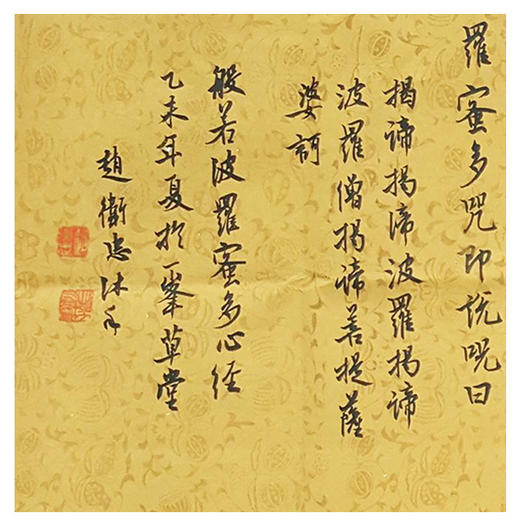 羅蜜多咒即說呪曰
揭諦揭諦波羅揭諦
波羅僧揭諦菩提薩
婆訶
般若波羅蜜多心経
乙未年夏於一峯草堂
趙衛忠沐手